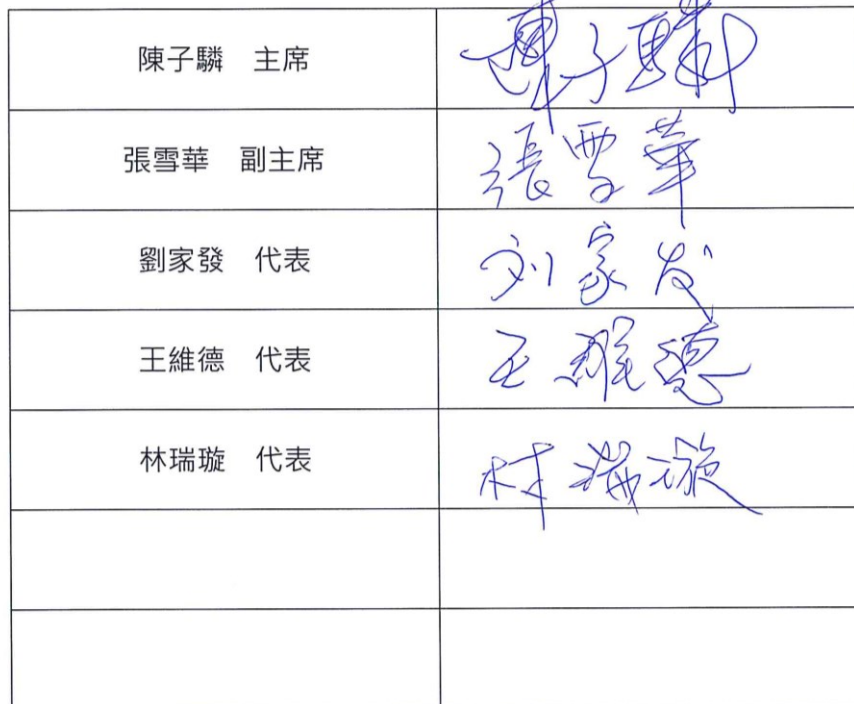 陳子驎　主席　陳子驎
張雪華　副主席　張雪華
劉家發　代表　刘家发
王維德　代表　王維德
林瑞璇　代表　林瑞璇